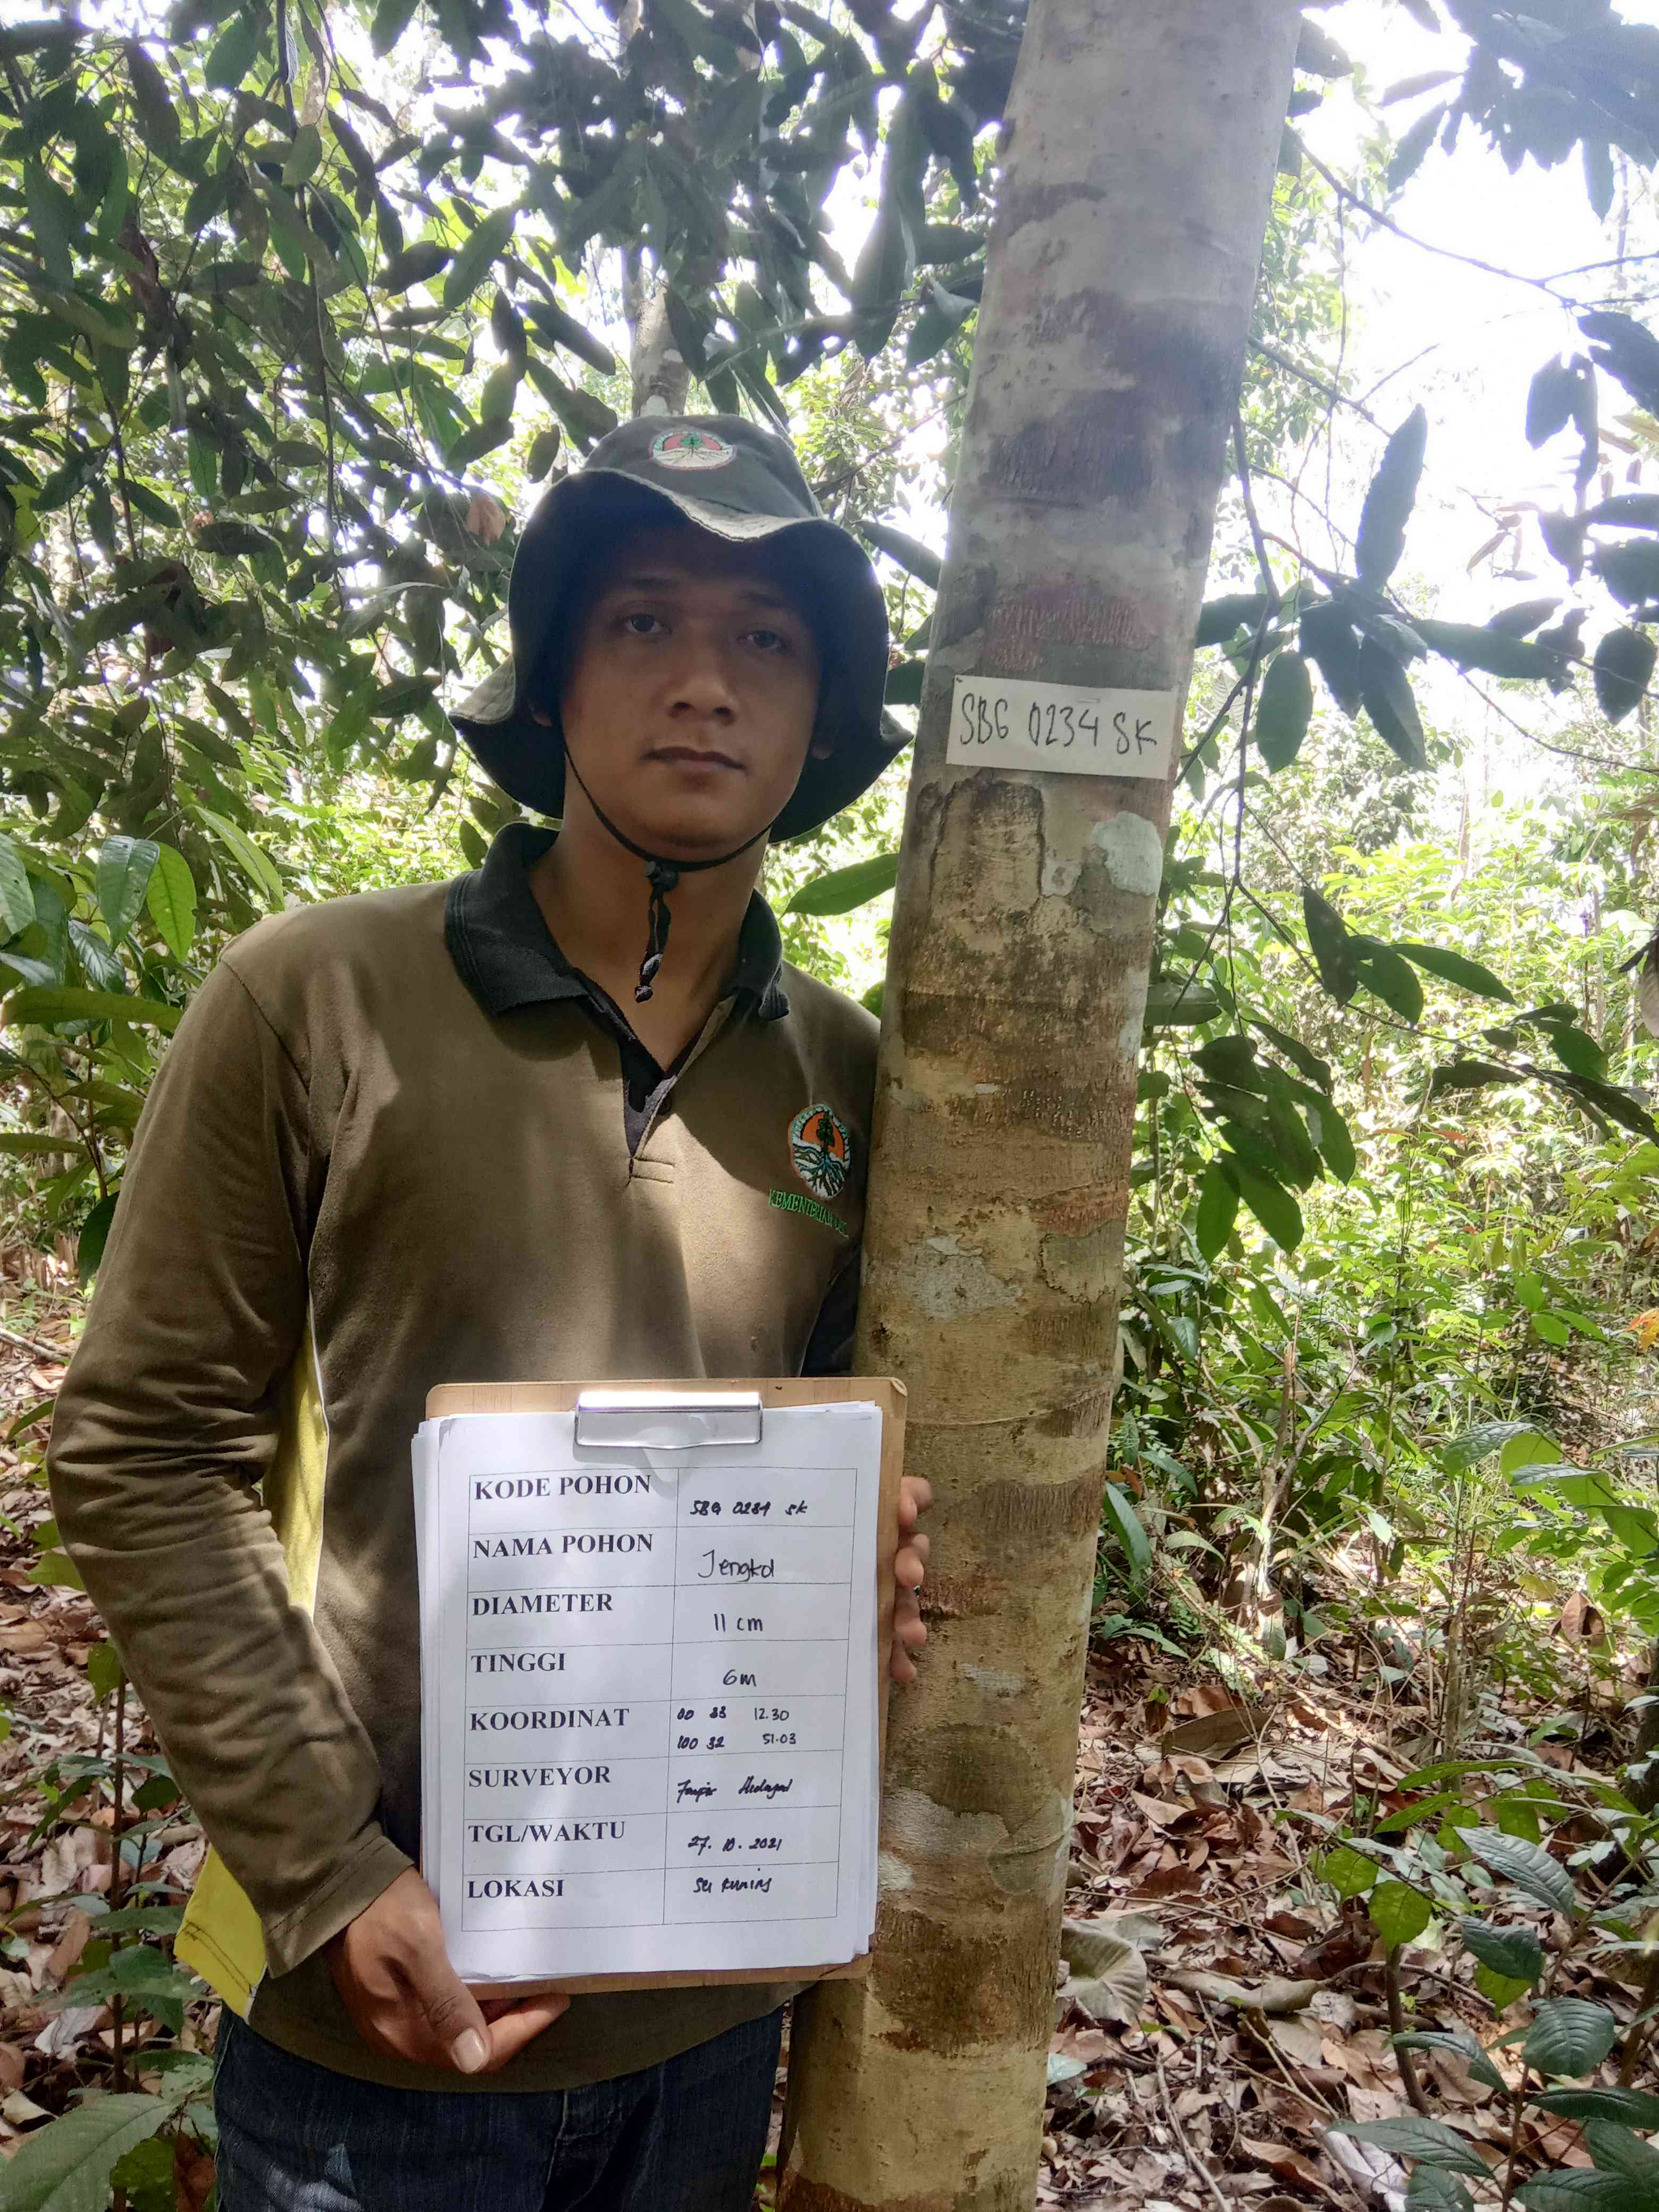 SBG 0234 SK
KODE POHON SBG 0234 SK
NAMA POHON Jengkol
DIAMETER 11 cm
TINGGI 6m
KOORDINAT 00 33 12.30
100 32 51.03
SURVEYOR
TGL/WAKTU 27. 10. 2021
LOKASI Sei Kuning